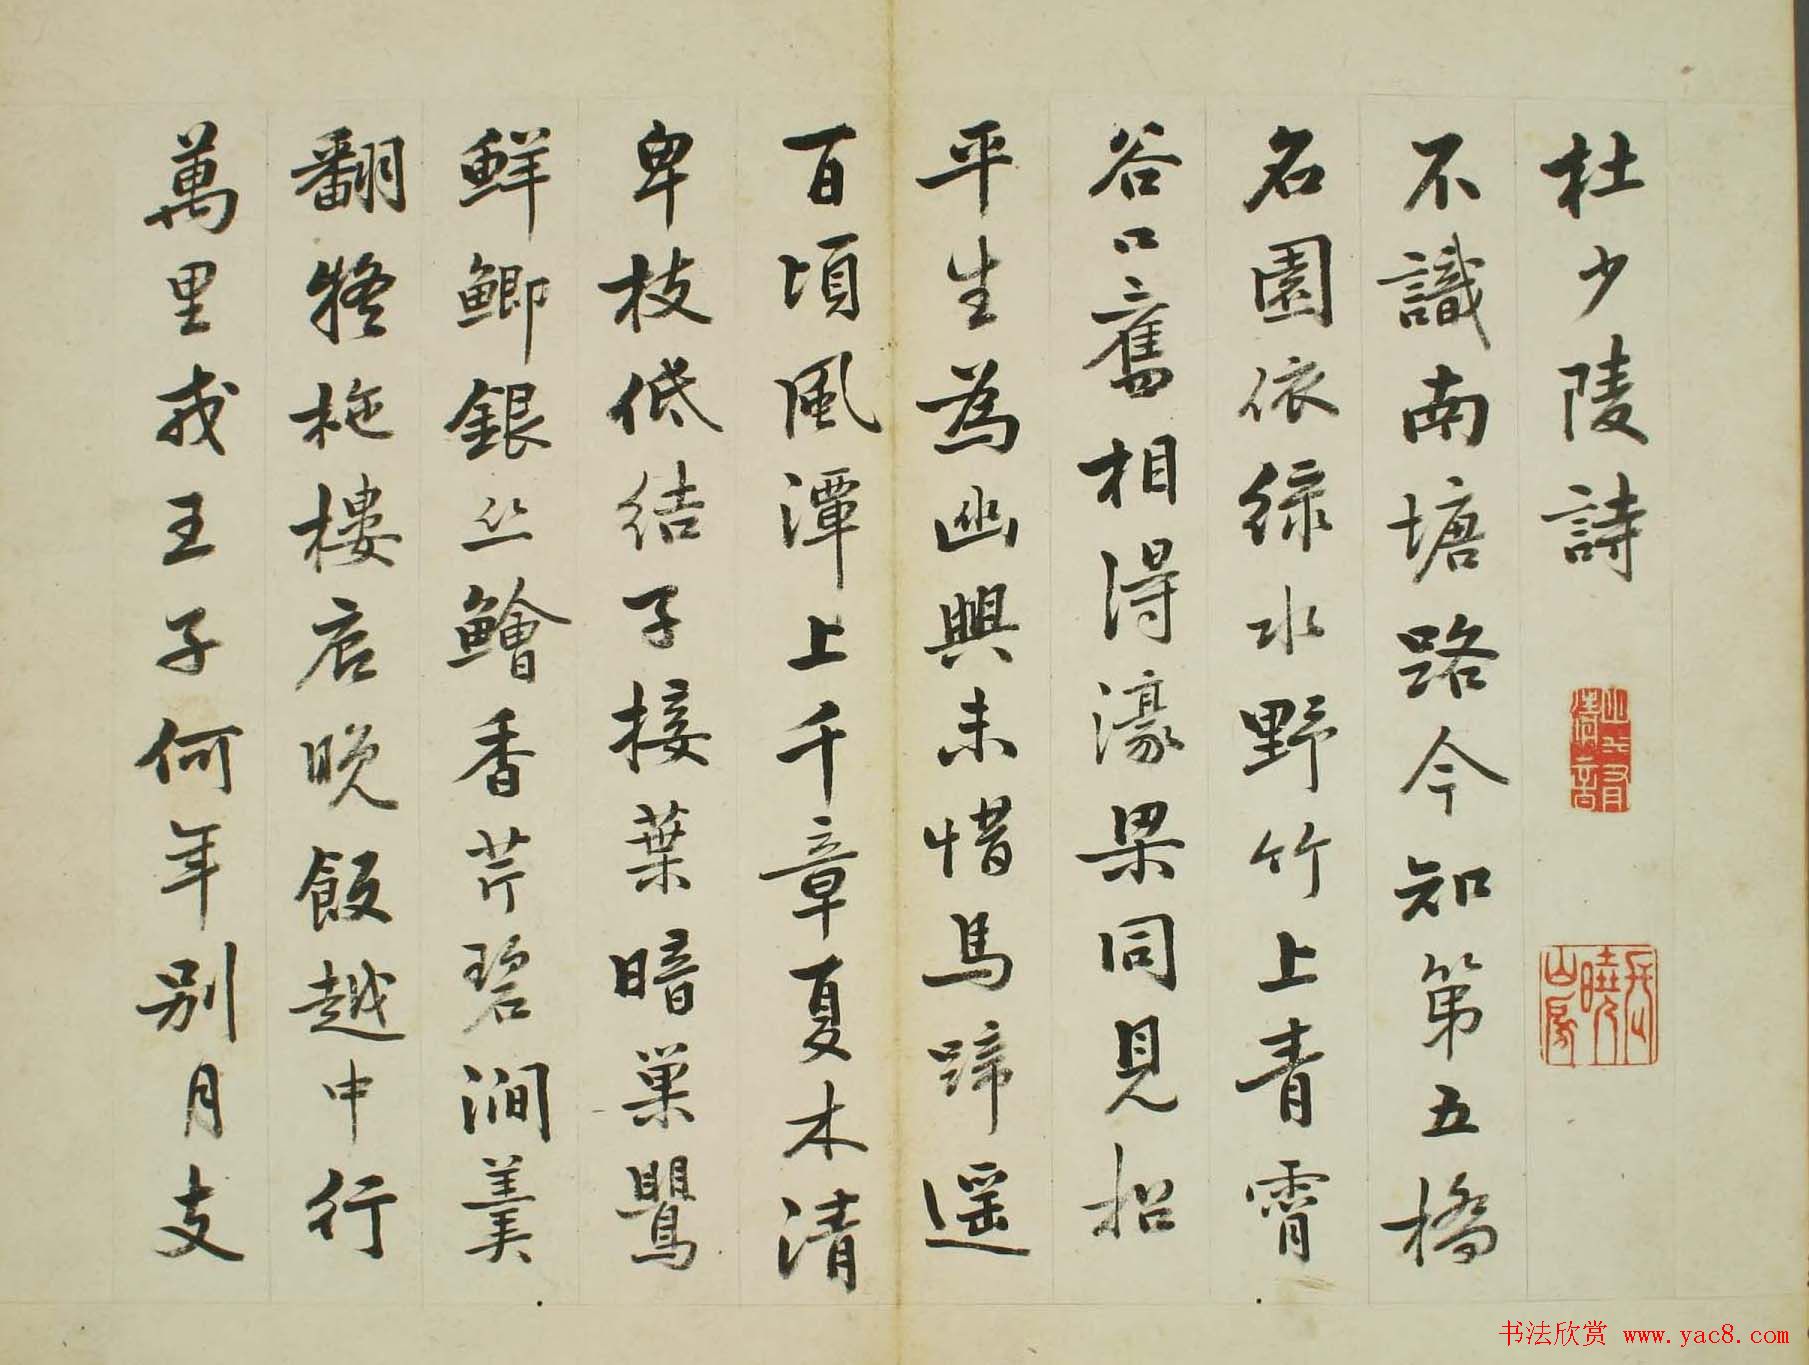 杜少陵詩
不識南塘路今知第五橋
名園依綠水野竹上青霄
谷口舊相得濠梁同見招
平生為幽興未惜馬蹄遥
百頃風潭上千章夏木清
卑枝低結子接葉暗巢鸎
鮮鯽銀丝鱠香芹碧澗羹
翻疑柂樓底晚飯越中行
萬里戎王子何年別月支
山水有清音
书法欣赏 www.yac8.com